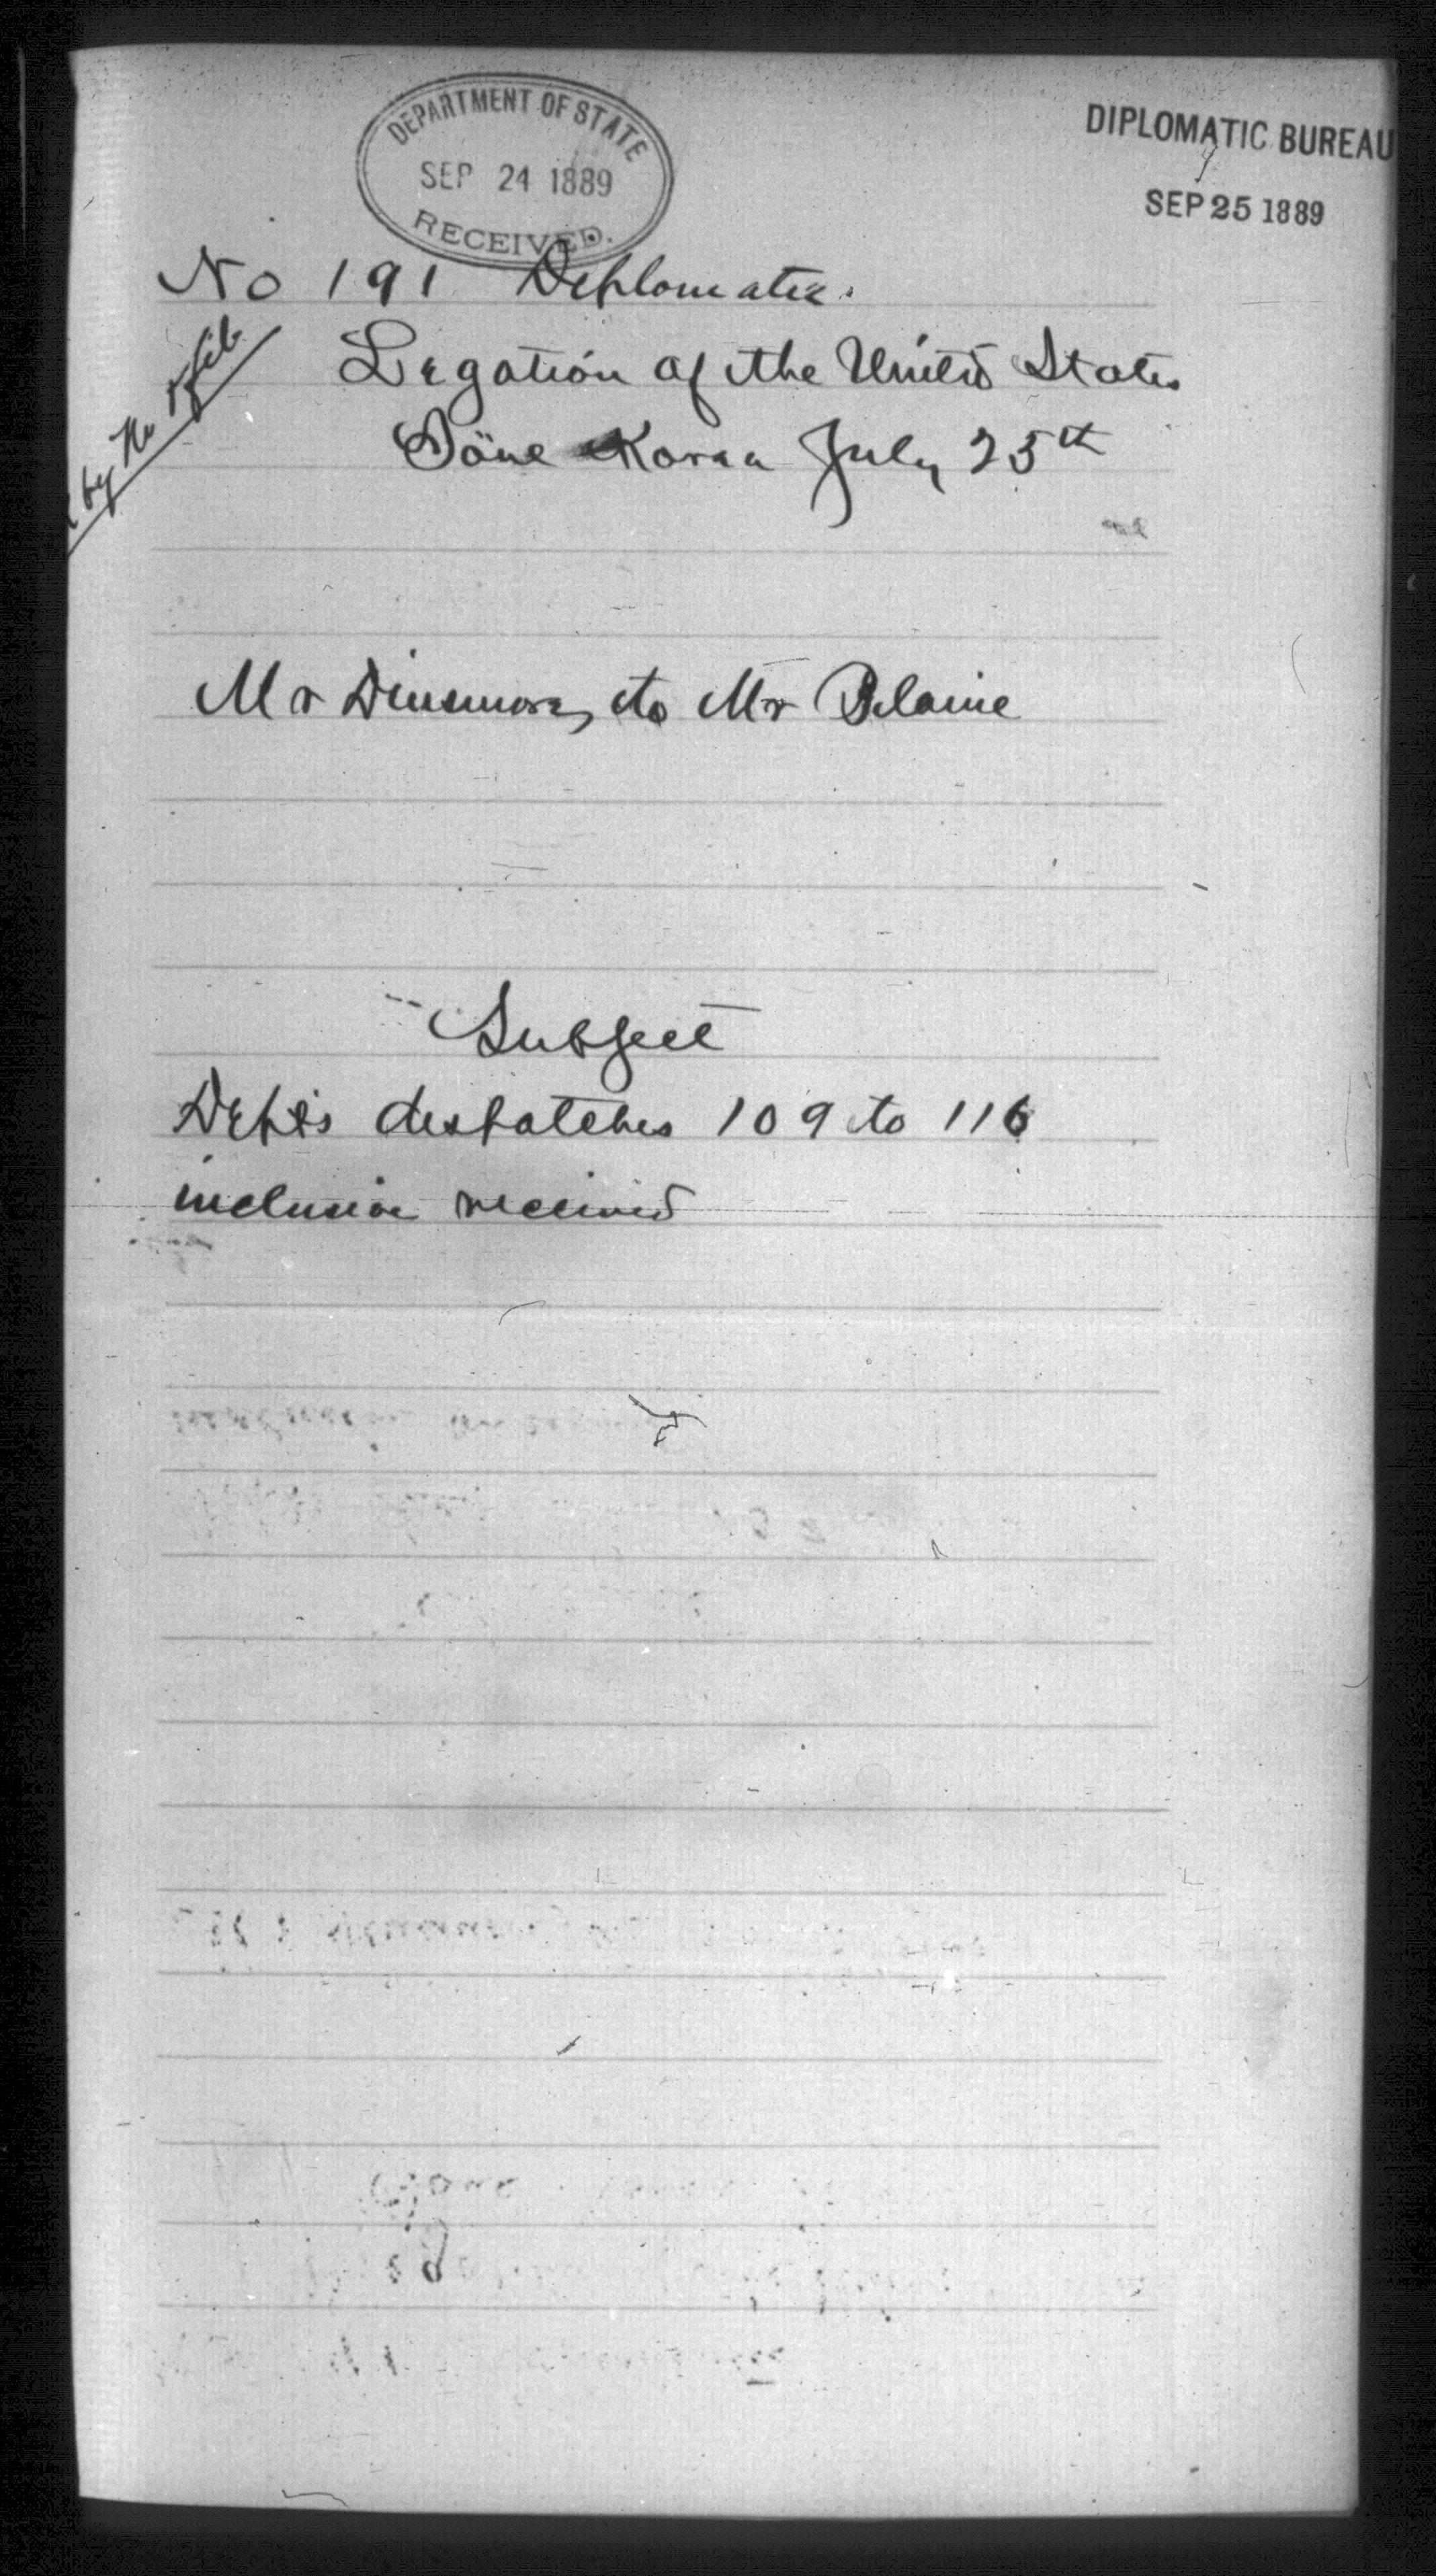 DEPARTMENT OF STATE
SEP 24 1889
RECEIVED.
DIPLOMATIC BUREAU
SEP 25 1889
No 191 Diplomatic.
Legation of the United States
Söul Korea July 25th
by
file
Mr Dinsmore, to Mr Blaine
Subject
Dept's despatches 109 to 116
inclusive received